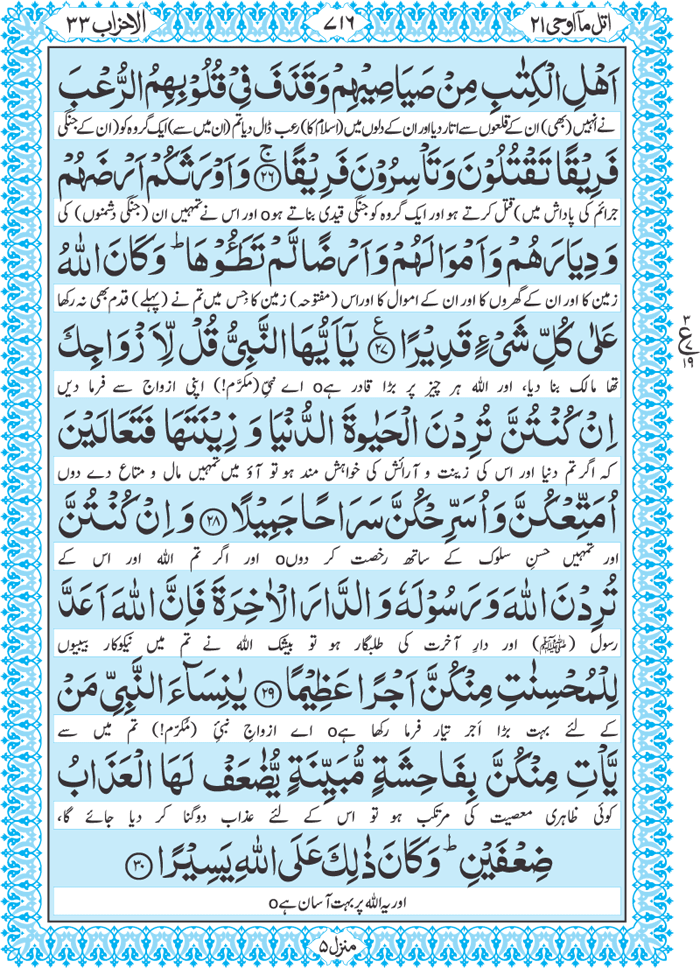 اتل مآ اوحی ۲۱
۷۱۶
الاحزاب ۳۳
اَهْلِ الْكِتٰبِ مِنْ صَيَاصِيْهِمْ وَقَذَفَ فِيْ قُلُوْبِهِمُ الرُّعْبَ
نے انہیں (بھی) ان کے قلعوں سے اتار دیا اور ان کے دلوں میں (اسلام کا) رعب ڈال دیا تم (ان میں سے) ایک گروہ کو (ان کے جنگی
فَرِيْقًا تَقْتُلُوْنَ وَتَاْسِرُوْنَ فَرِيْقًا ۚ ۲۶ وَاَوْرَثَكُمْ اَرْضَهُمْ
جرائم کی پاداش میں) قتل کرتے ہو اور ایک گروہ کو جنگی قیدی بناتے ہوo اور اس نے تمہیں ان (جنگی دشمنوں) کی
وَدِيَارَهُمْ وَاَمْوَالَهُمْ وَاَرْضًا لَّمْ تَطَـُٔوْهَا ؕ وَكَانَ اللّٰهُ
زمین کا اور ان کے گھروں کا اور ان کے اموال کا اور اس (مفتوحہ) زمین کا جس میں تم نے (پہلے) قدم بھی نہ رکھا
عَلٰى كُلِّ شَيْءٍ قَدِيْرًا ۲۷ ع يٰۤاَيُّهَا النَّبِيُّ قُلْ لِّاَزْوَاجِكَ
تھا مالک بنا دیا، اور اللہ ہر چیز پر بڑا قادر ہےo اے نبیِّ (مکرَّم!) اپنی ازواج سے فرما دیں
۳
ع
۷
۱۹
اِنْ كُنْتُنَّ تُرِدْنَ الْحَيٰوةَ الدُّنْيَا وَ زِيْنَتَهَا فَتَعَالَيْنَ
کہ اگر تم دنیا اور اس کی زینت و آرائش کی خواہش مند ہو تو آؤ میں تمہیں مال و متاع دے دوں
اُمَتِّعْكُنَّ وَاُسَرِّحْكُنَّ سَرَاحًا جَمِيْلًا ۲۸ وَ اِنْ كُنْتُنَّ
اور تمہیں حسنِ سلوک کے ساتھ رخصت کر دوںo اور اگر تم اللہ اور اس کے
تُرِدْنَ اللّٰهَ وَرَسُوْلَهٗ وَ الدَّارَ الْاٰخِرَةَ فَاِنَّ اللّٰهَ اَعَدَّ
رسول (ﷺ) اور دارِ آخرت کی طلبگار ہو تو بیشک اللہ نے تم میں نیکوکار بیبیوں
لِلْمُحْسِنٰتِ مِنْكُنَّ اَجْرًا عَظِيْمًا ۲۹ يٰنِسَآءَ النَّبِيِّ مَنْ
کے لئے بہت بڑا اَجر تیار فرما رکھا ہےo اے ازواجِ نبیِّ (مُکرّم!) تم میں سے
يَّاْتِ مِنْكُنَّ بِفَاحِشَةٍ مُّبَيِّنَةٍ يُّضٰعَفْ لَهَا الْعَذَابُ
کوئی ظاہری معصیت کی مرتکب ہو تو اس کے لئے عذاب دوگنا کر دیا جائے گا،
ضِعْفَيْنِ ؕ وَكَانَ ذٰلِكَ عَلَى اللّٰهِ يَسِيْرًا ۳۰
اور یہ اللہ پر بہت آسان ہےo
منزل ۵